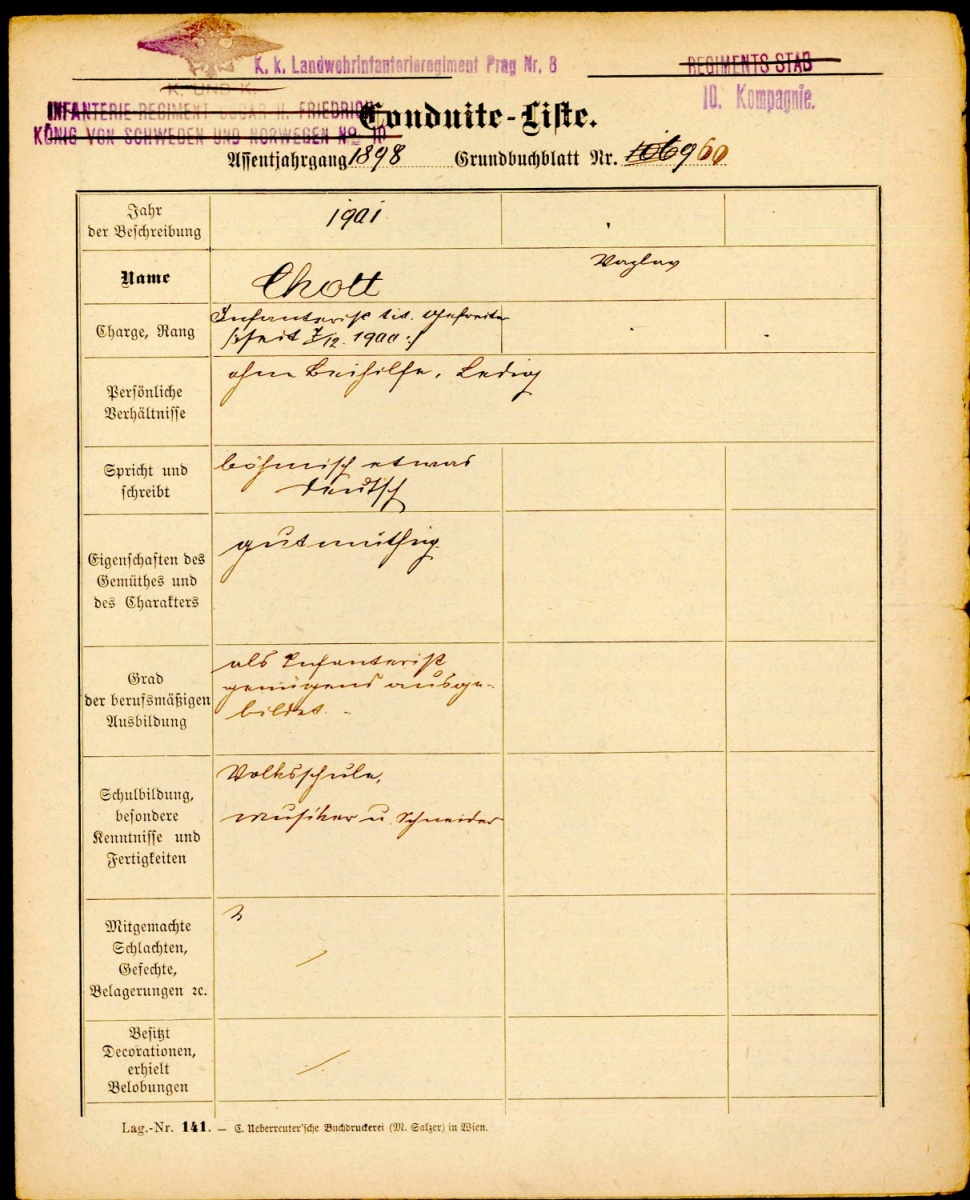 K. k. Landwehrinfanterieregiment Prag Nr. 8
REGIMENTS STAB
K. UND K.
10. Kompagnie.
INFANTERIE-REGIMENT OSCAR II. FRIEDRICH
KÖNIG VON SCHWEDEN UND NORWEGEN No 10
Conduite-Liste.
Assentjahrgang 1898 Grundbuchblatt Nr. 106 960
Jahr
der Beschreibung
1901
Name
Chott
Vazlav
Charge, Rang
Infanterist tit. Gefreiter
/: seit 7/12. 1900 :/
Persönliche
Verhältnisse
ohne Beihilfe, Ledig
Spricht und
schreibt
böhmisch etwas
deutsch
Eigenschaften des
Gemüthes und
des Charakters
gutmüthig
Grad
der berufsmäßigen
Ausbildung
als Infanterist
genügend ausge-
bildet. -
Schulbildung,
besondere
Kenntnisse und
Fertigkeiten
Volksschule,
Musiker u. Schneider
Mitgemachte
Schlachten,
Gefechte,
Belagerungen ꝛc.
Besitzt
Decorationen,
erhielt
Belobungen
Lag.-Nr. 141. — C. Ueberreuter'sche Buchdruckerei (M. Salzer) in Wien.